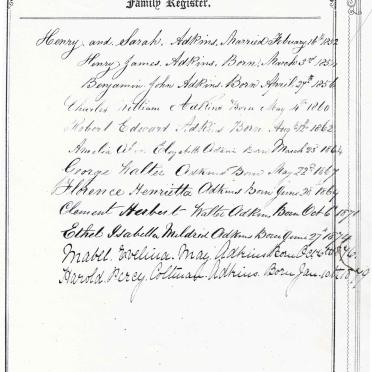 Family Register.
Henry and Sarah Adkins. Married February 16th 1852
Henry James Adkins. Born March 3rd 1854
Benjamin John Adkins. Born April 29th 1856
Charles William Adkins Born May 4th 1860
Robert Edward Adkins Born Aug 1862
Amelia Elizabeth Adkins Born March 28 1864
George Walter Adkins Born May 22nd 1867
Florence Henrietta Adkins Born June 1869
Clement Herbert Walter Adkins Born Oct 6 1871
Ethel Isabella Mildred Adkins Born June 27 1874
Mabel Evelina May Adkins Born
Harold Percy Coltman Adkins. Born Jan. 10th